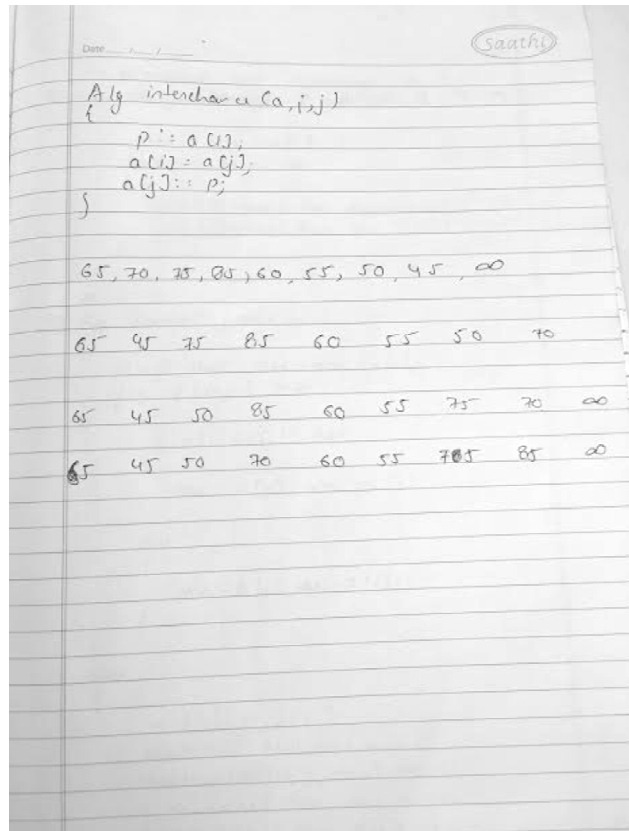 Date / /
Saathi
Alg interchan u (a,i,j)
{
p := a[i];
a[i] = a[j];
a[j] := p;
}
65, 70, 75, 85, 60, 55, 50, 45, ∞
65 45 75 85 60 55 50 70
65 45 50 85 60 55 75 70 ∞
65 45 50 70 60 55 75 85 ∞